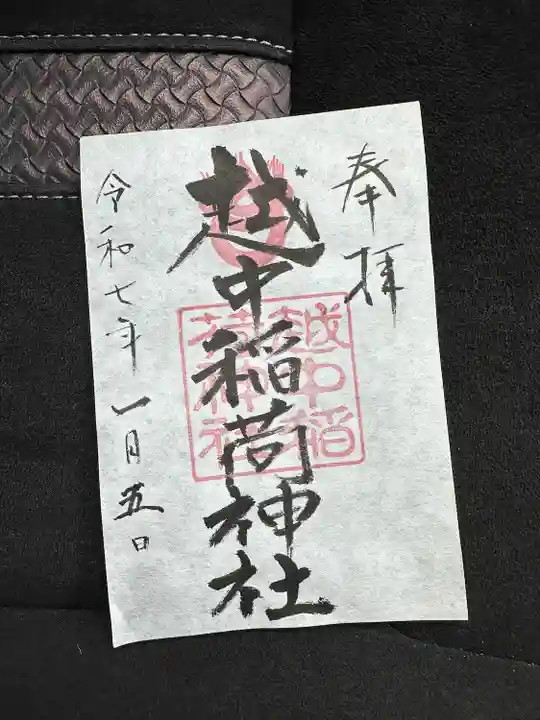 奉拝
越中稲荷神社
越中稲
荷神社
令和七年一月五日